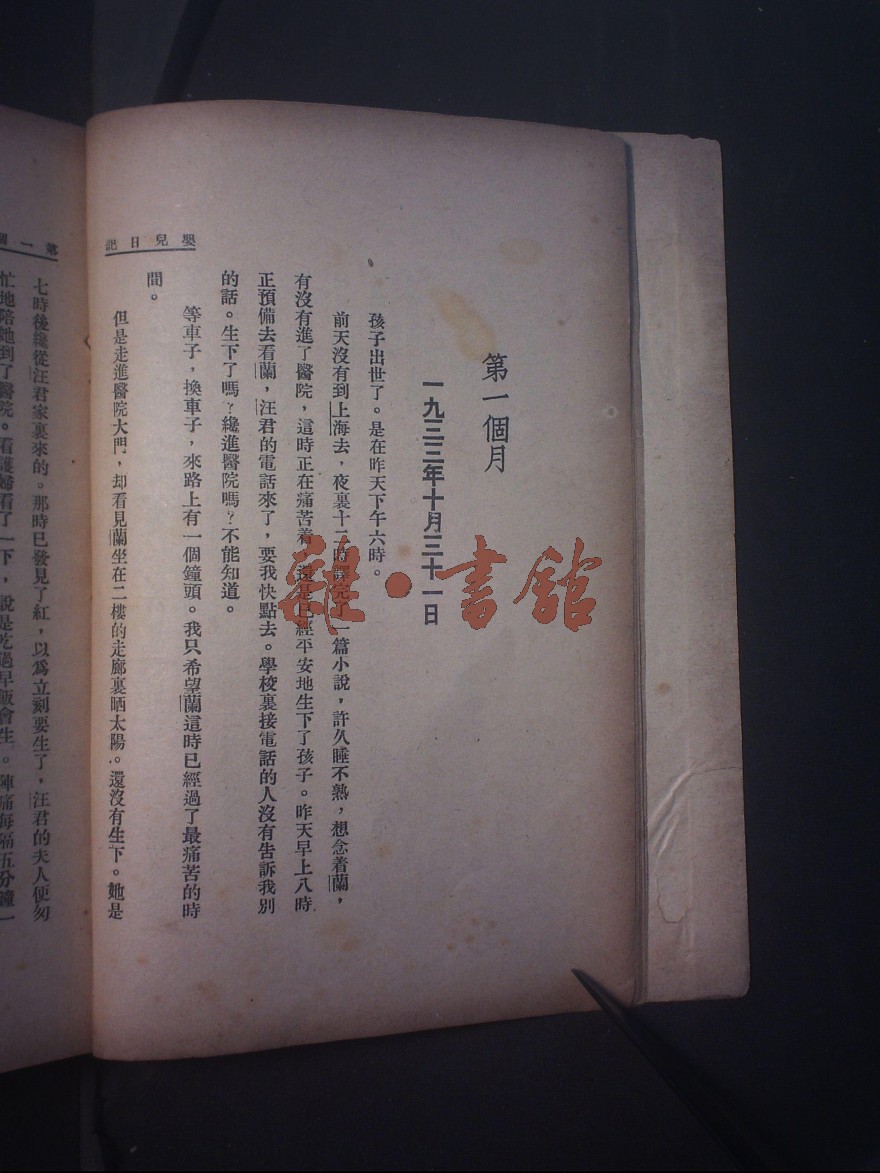 嬰兒日記
第一個月
一九三三年十月三十一日
孩子出世了。是在昨天下午六時。
前天沒有到上海去，夜裏十一時譯完了一篇小說，許久睡不熟，想念着蘭，
有沒有進了醫院，這時正在痛苦着，還是已經平安地生下了孩子。昨天早上八時
正預備去看蘭，汪君的電話來了，要我快點去。學校裏接電話的人沒有告訴我別
的話。生下了嗎？纔進醫院嗎？不能知道。
等車子，換車子，來路上有一個鐘頭。我只希望蘭這時已經過了最痛苦的時
間。
但是走進醫院大門，却看見蘭坐在二樓的走廊裏晒太陽。還沒有生下。她是
第一
七時後纔從汪君家裏來的。那時已發見了紅，以爲立刻要生了，汪君的夫人便匆
忙地陪她到了醫院。看護婦看了一下，說是吃過早飯會生。陣痛每隔五分鐘一
雜·書館